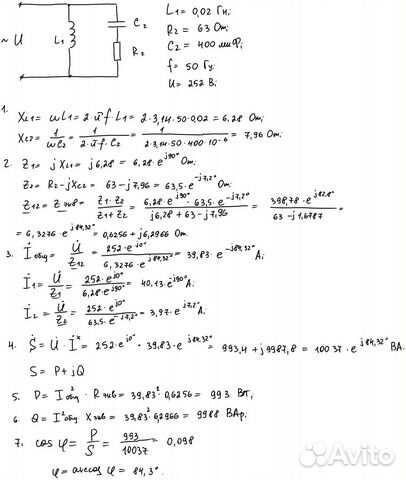 ~ U
L₁
C₂
R₂
L₁ = 0,02 Гн;
R₂ = 63 Ом;
C₂ = 400 мкФ;
f = 50 Гц;
U = 252 В;
1.
X_L1 = ωL₁ = 2·π·f·L₁ = 2·3,14·50·0,02 = 6,28 Ом;
X_C2 = 1/ωC₂ = 1/(2·π·f·C₂) = 1/(2·3,14·50·400·10⁻⁶) = 7,96 Ом;
2. Z₁ = jX_L1 = j6,28 = 6,28·e^(j90°) Ом;
Z₂ = R₂ - jX_C2 = 63 - j7,96 = 63,5·e^(-j7,2°) Ом;
Z₁₂ = Z экв = (Z₁·Z₂)/(Z₁+Z₂) = (6,28·e^(j90°)·63,5·e^(-j7,2°))/(j6,28 + 63 - j7,96) = (398,78·e^(j82,8°))/(63 - j1,6787) =
= 6,3276·e^(j84,32°) = 0,6256 + j6,2966 Ом;
3. İ общ = U̇/Z₁₂ = (252·e^(j0°))/(6,3276·e^(j84,32°)) = 39,83·e^(-j84,32°) А;
İ₁ = U̇/Z₁ = (252·e^(j0°))/(6,28·e^(j90°)) = 40,13·e^(-j90°) А;
İ₂ = U̇/Z₂ = (252·e^(j0°))/(63,5·e^(-j7,2°)) = 3,97·e^(j7,2°) А;
4. Ṡ = U̇·İ^* = 252·e^(j0°)·39,83·e^(j84,32°) = 993,4 + j9987,8 = 10037·e^(j84,32°) ВА
S = P + jQ
5. P = I²общ·R экв = 39,83²·0,6256 = 993 Вт;
6. Q = I²общ·X экв = 39,83²·6,2966 = 9988 ВАр;
7. cos φ = P/S = 993/10037 = 0,098
φ = arccos φ = 84,3°.
Avito